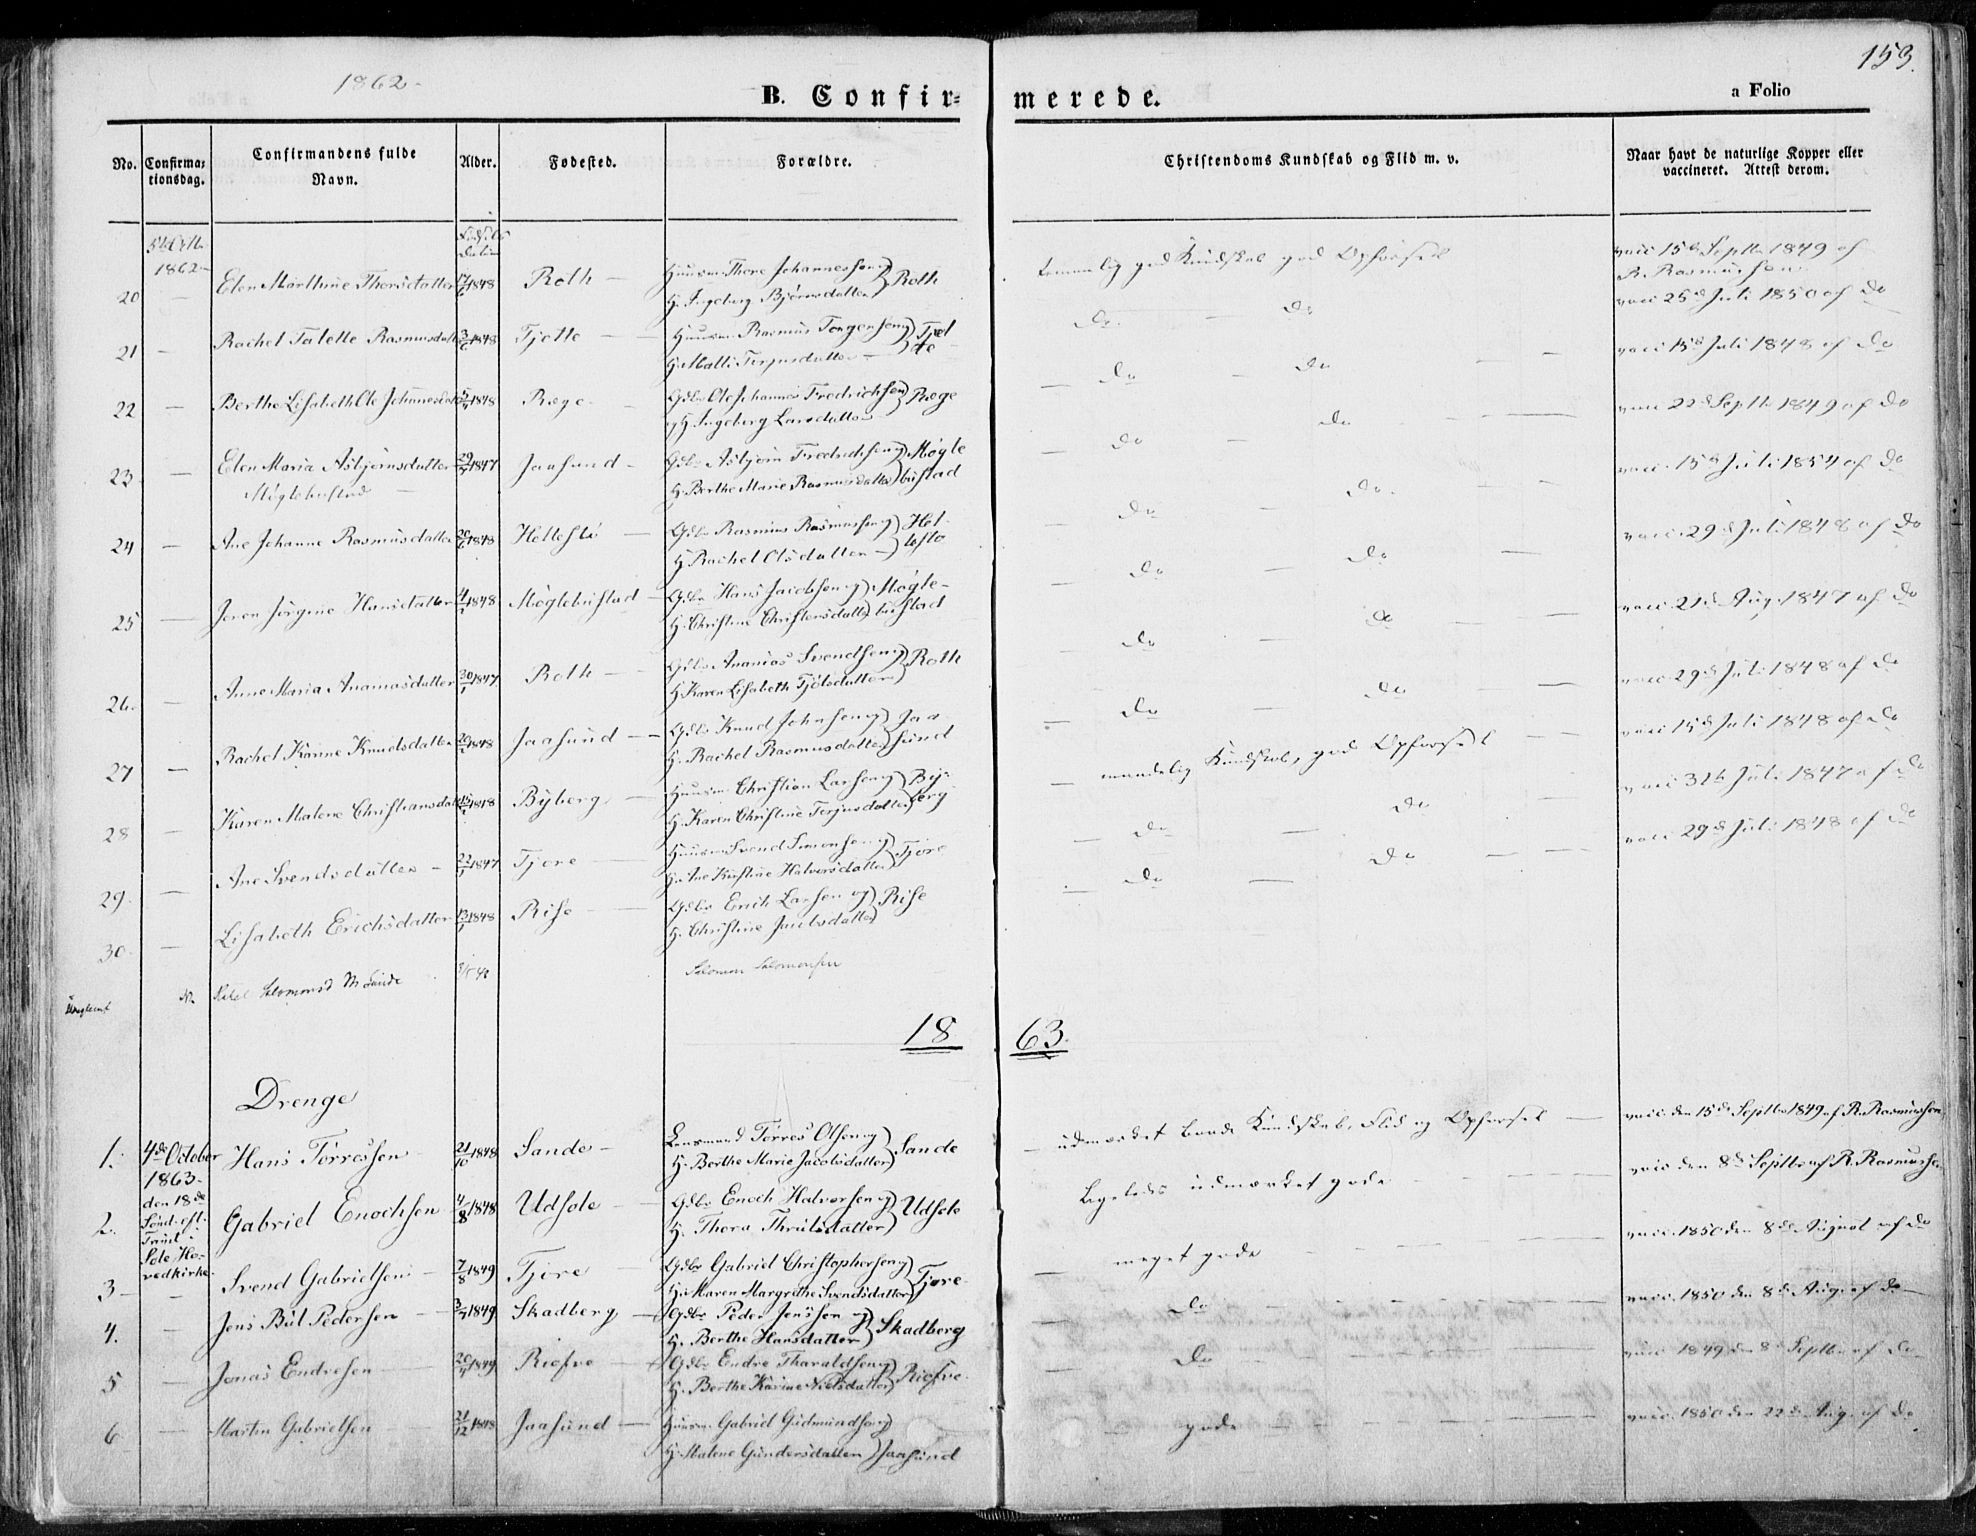 153.
1862-
B. Confir= merede.
a Folio
No. Confirma=tionsdag. Confirmandens fulde Navn. Alder. Fødested. Forældre. Christendoms Kundskab og Flid m. v. Naar havt de naturlige Kopper eller vaccineret. Attest derom.
1862-
20 Elen Marthine Thorsdatter 1848 Roth Huusm. Thore Johannessen og H. Ingeborg Bjørnsdatter Roth temmelig god Kundskab god Opførsel vacc 15de Septbr 1849 af R. Rasmussen
21 Rachel Talette Rasmusdatter 1848 Tjotte Huusm. Rasmus Torgersen og H. Malli Terjesdatter Tjotte do do vacc 25de Juli 1850 af do
22 Berthe Lisabeth Ole Johannesdatter 1848 Ræge Gdbr Ole Johannes Fredrichsen og H Ingeborg Larsdatter Ræge do do vacc 15de Juli 1848 af do
23 Elen Maria Asbjørnsdatter Møglebustad 29 1847 Jaasund Gdbr Asbjørn Fredrichsen og H. Berthe Marie Rasmusdatter Møglebustad do do vacc 22de Septbr 1849 af do
24 Ane Johanne Rasmusdatter 1848 Hellestø Gdbr Rasmus Rasmussen og H Rachel Olsdatter Hellestø do do vacc. 15de Juli 1854 af do
25 Joren Jørgine Hansdatter 4 1848 Møglebustad Gdbr Hans Jacobsen og H. Christine Christensdatter Møglebustad do do vacc. 29de Juli 1848 af do
26. Anne Maria Ananiasdatter 30 1847 Roth Gdbr Ananias Svendsen og H Karen Lisabeth Tjølsdatter Roth do do vacc. 21de Aug. 1847 af do
27 Rachel Karine Knudsdatter 1848 Jaasund Gdbr Knud Johnsen og H. Rachel Rasmusdatter Jaasund do do vacc 29de Juli 1848 af do
28 Karen Malene Christiansdatter 1848 Byberg Huusm. Christian Larsen og H. Karen Christine Terjesdatter Byberg maadelig Kundskab, god Opførsel vacc 15de Juli 1848 af do
29. Ane Svendsdatter 22 1847 Tjore Huusm Svend Simonsen og H. Ane Kirstine Halvorsdatter Tjore do do vacc 31te Juli 1847 af do
30. Lisabeth Erichsdatter 13 1848 Risø Gdbr Erich Larsen og H. Christine Jacobsdatter Risø do do vacc 29de Juli 1848 af do
Salomonsd Salomon Salomonsen
18 63.
Drenge
1. 4de October 1863- den 18de Sønd. eft. Trinit. i Sole Hovedkirke Hans Tørresen 21/10 1848 Sande Lensmand Tørres Olsen og H. Berthe Marie Jacobsdatter Sande udmærket baade Kundskab, Flid og Opførsel vacc. den 15de Septbr 1849 af R. Rasmussen
2. Gabriel Enochsen 4/8 1848 Udsole Gdbr Enoch Halvorsen og H. Thora Thrulsdatter Udsole ligeledes udmærket gode vacc den 8de Septbr af R. Rasmussen
3 Svend Gabrielsen 7/8 1849 Tjore Gdbr Gabriel Christophersen og H. Maren Margrethe Svendsdatter Tjore meget gode vacc. 1850 den 8de August af do
4. Jens Bul Pedersen 1849 Skadberg Gdbr Peder Jenssen og H. Berthe Hansdatter Skadberg do vacc. 1850 den 8de Aug. af do
5 Jonas Endresen 20 1849 Riefve Gdbr Endre Tharaldsen og H. Berthe Karine Nielsdatter Riefve. do vacc 1849 den 8de Septbr af do
6 Martin Gabrielsen 21/12 1848 Jaasund Huusm. Gabriel Gudmundsen og H. Malene Gundersdatter Jaasund gode vacc. 1850 den 22de Aug. af do